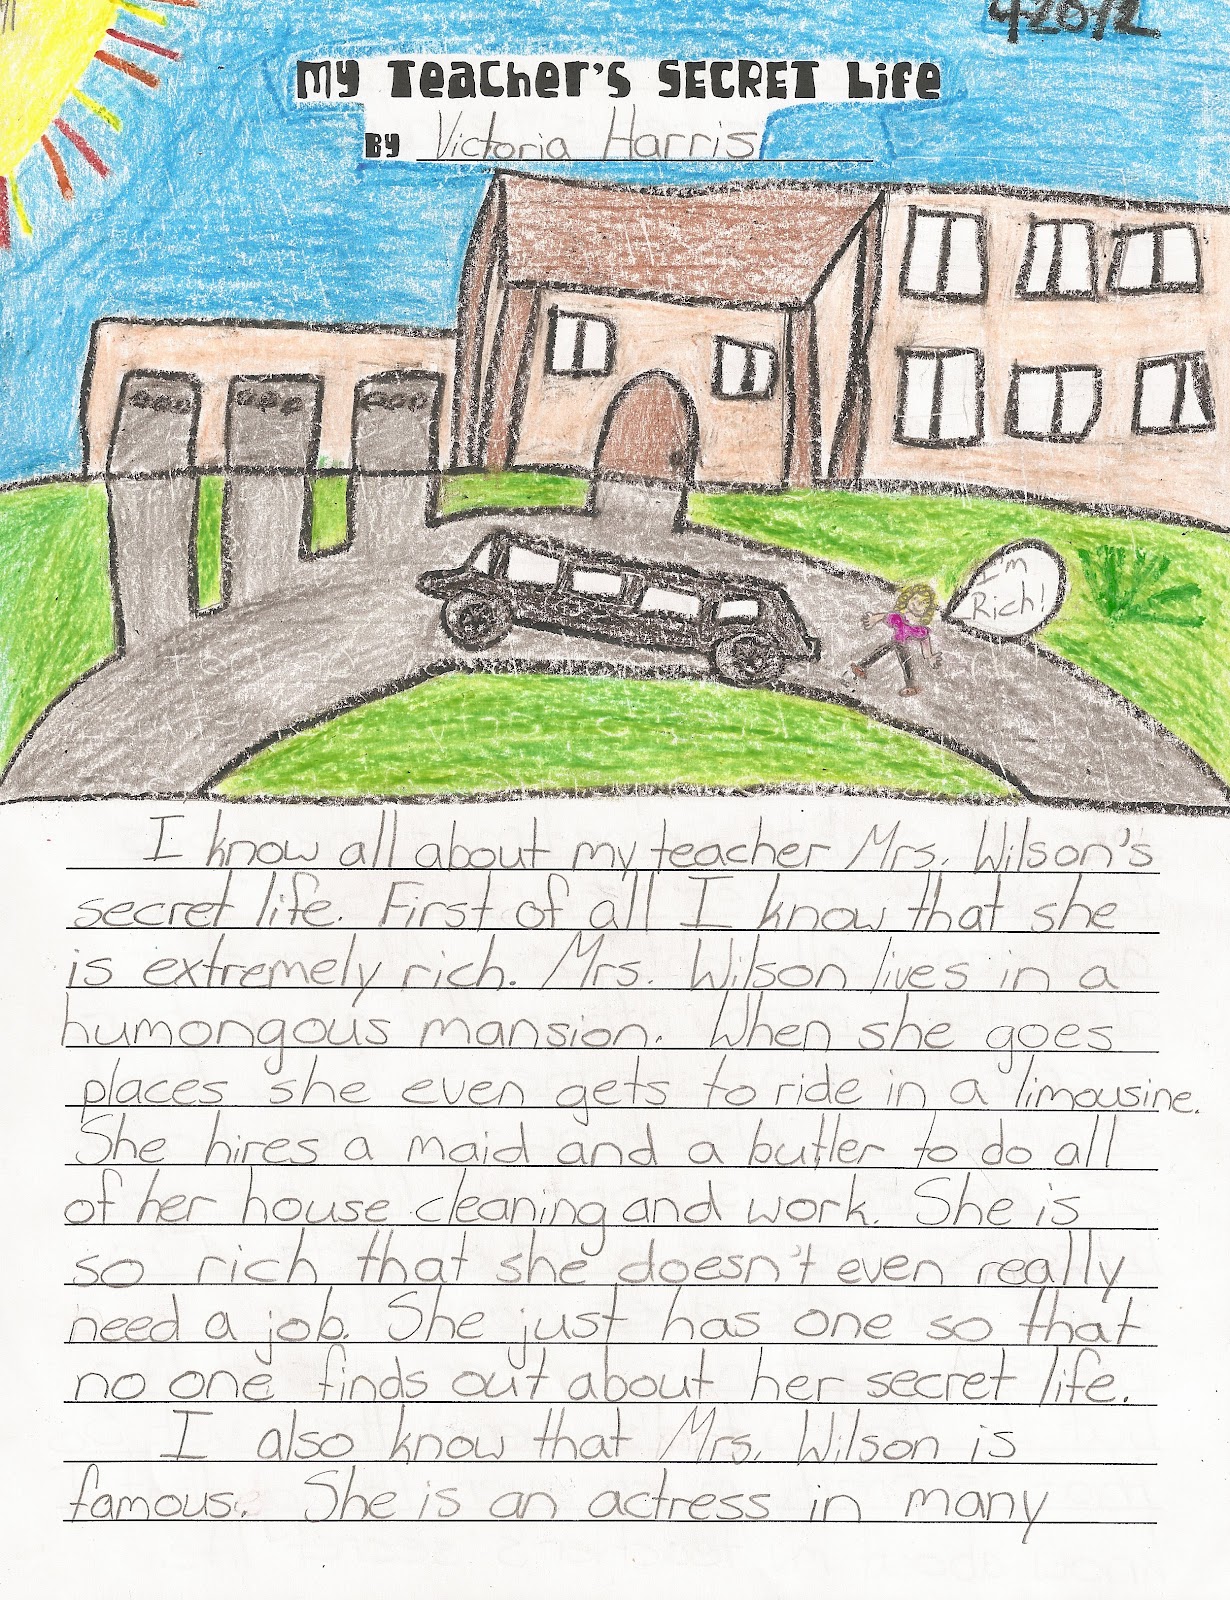 4-2012
My Teacher's SECRET Life
BY Victoria Harris
I'm
Rich!
I know all about my teacher Mrs. Wilson's
secret life. First of all I know that she
is extremely rich. Mrs. Wilson lives in a
humongous mansion. When she goes
places she even gets to ride in a limousine.
She hires a maid and a butler to do all
of her house cleaning and work. She is
so rich that she doesn't even really
need a job. She just has one so that
no one finds out about her secret life.
I also know that Mrs. Wilson is
famous. She is an actress in many